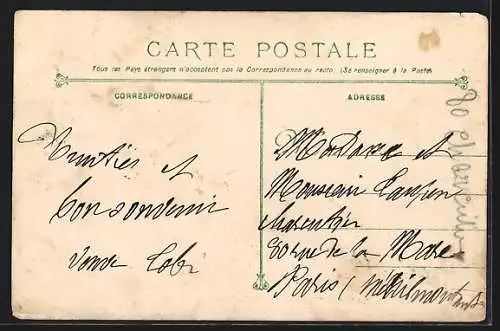 CARTE POSTALE
Tous les Pays étrangers n'acceptent pas la Correspondance au recto. (Se renseigner à la Poste)
CORRESPONDANCE
Amitiés et
bon souvenir
ADRESSE
Madame et
Monsieur
charcutier
30 rue de la Mare
Paris (Ménilmontant)